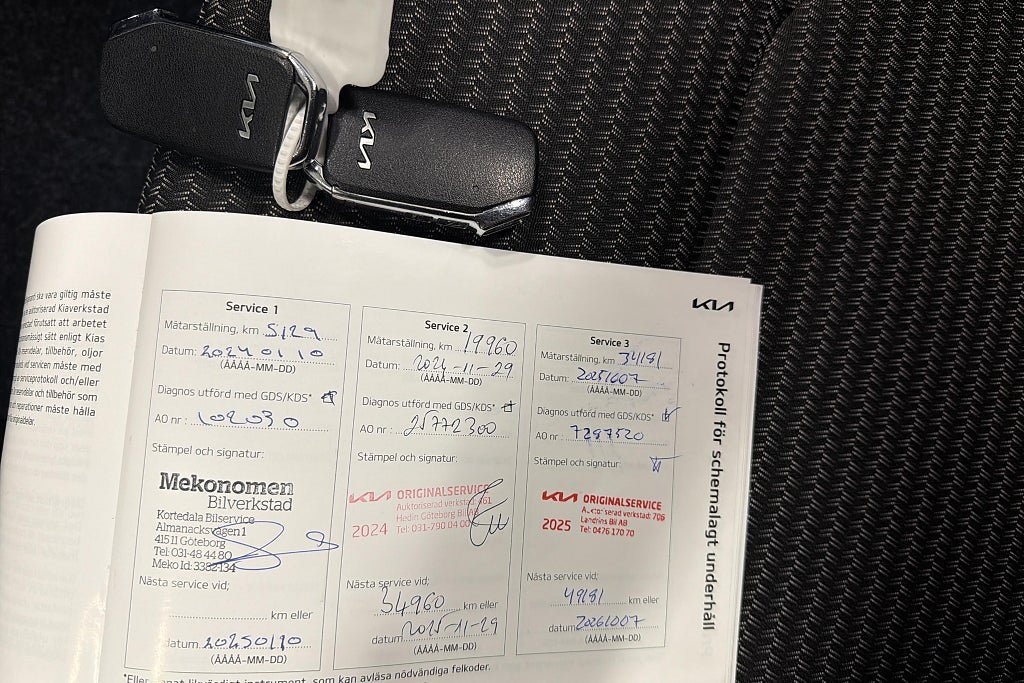 KIA
KIA
KIA
ska vara giltig måste
auktoriserad Kiaverkstad
förutsatt att arbetet
sätt enligt Kias
reservdelar, tillbehör, oljor
vid servicen måste med
serviceprotokoll och/eller
och tillbehör som
reparationer måste hålla
Protokoll för schemalagt underhåll
Service 1
Mätarställning, km 5129
Datum: 2024 01 10
(ÅÅÅÅ-MM-DD)
Diagnos utförd med GDS/KDS*
AO nr: 102030
Stämpel och signatur:
Mekonomen
Bilverkstad
Kortedala Bilservice
Almanacksvägen 1
415 11 Göteborg
Tel: 031-48 44 80
Meko Id: 3382-134
Nästa service vid;
km eller
datum 20250110
(ÅÅÅÅ-MM-DD)
Service 2
Mätarställning, km 19960
Datum: 2024-11-29
(ÅÅÅÅ-MM-DD)
Diagnos utförd med GDS/KDS*
AO nr: 25772300
Stämpel och signatur:
KIA ORIGINALSERVICE
Auktoriserad verkstad: 461
Hedin Göteborg Bil AB
2024 Tel: 031-790 04 00
Nästa service vid;
34960 km eller
datum 2025-11-29
(ÅÅÅÅ-MM-DD)
Service 3
Mätarställning, km 34181
Datum: 20251007
(ÅÅÅÅ-MM-DD)
Diagnos utförd med GDS/KDS*
AO nr: 7287520
Stämpel och signatur:
KIA ORIGINALSERVICE
Auktoriserad verkstad: 706
Landrins Bil AB
2025 Tel: 0476 170 70
Nästa service vid;
49181 km eller
datum 20261007
(ÅÅÅÅ-MM-DD)
*Eller annat likvärdigt instrument, som kan avläsa nödvändiga felkoder.